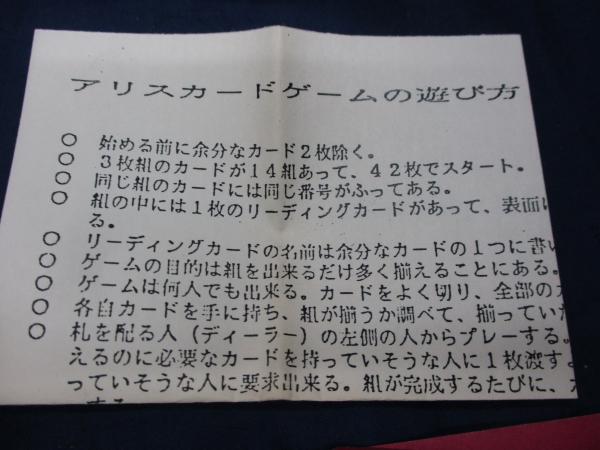 アリスカードゲームの遊び方
○ 始める前に余分なカード2枚除く。
○ 3枚組のカードが14組あって、42枚でスタート。
○ 同じ組のカードには同じ番号がふってある。
○ 組の中には1枚のリーディングカードがあって、表面に
る。
○ リーディングカードの名前は余分なカードの1つに書い
○ ゲームの目的は組を出来るだけ多く揃えることにある。
○ ゲームは何人でも出来る。カードをよく切り、全部の
○ 各自カードを手に持ち、組が揃うか調べて、揃ってい
○ 札を配る人(ディーラー)の左側の人からプレーする。
えるのに必要なカードを持っていそうな人に1枚渡す
っていそうな人に要求出来る。組が完成するたびに、
する